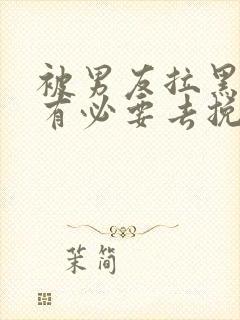 被男友拉黑
有必要去挽
茉简